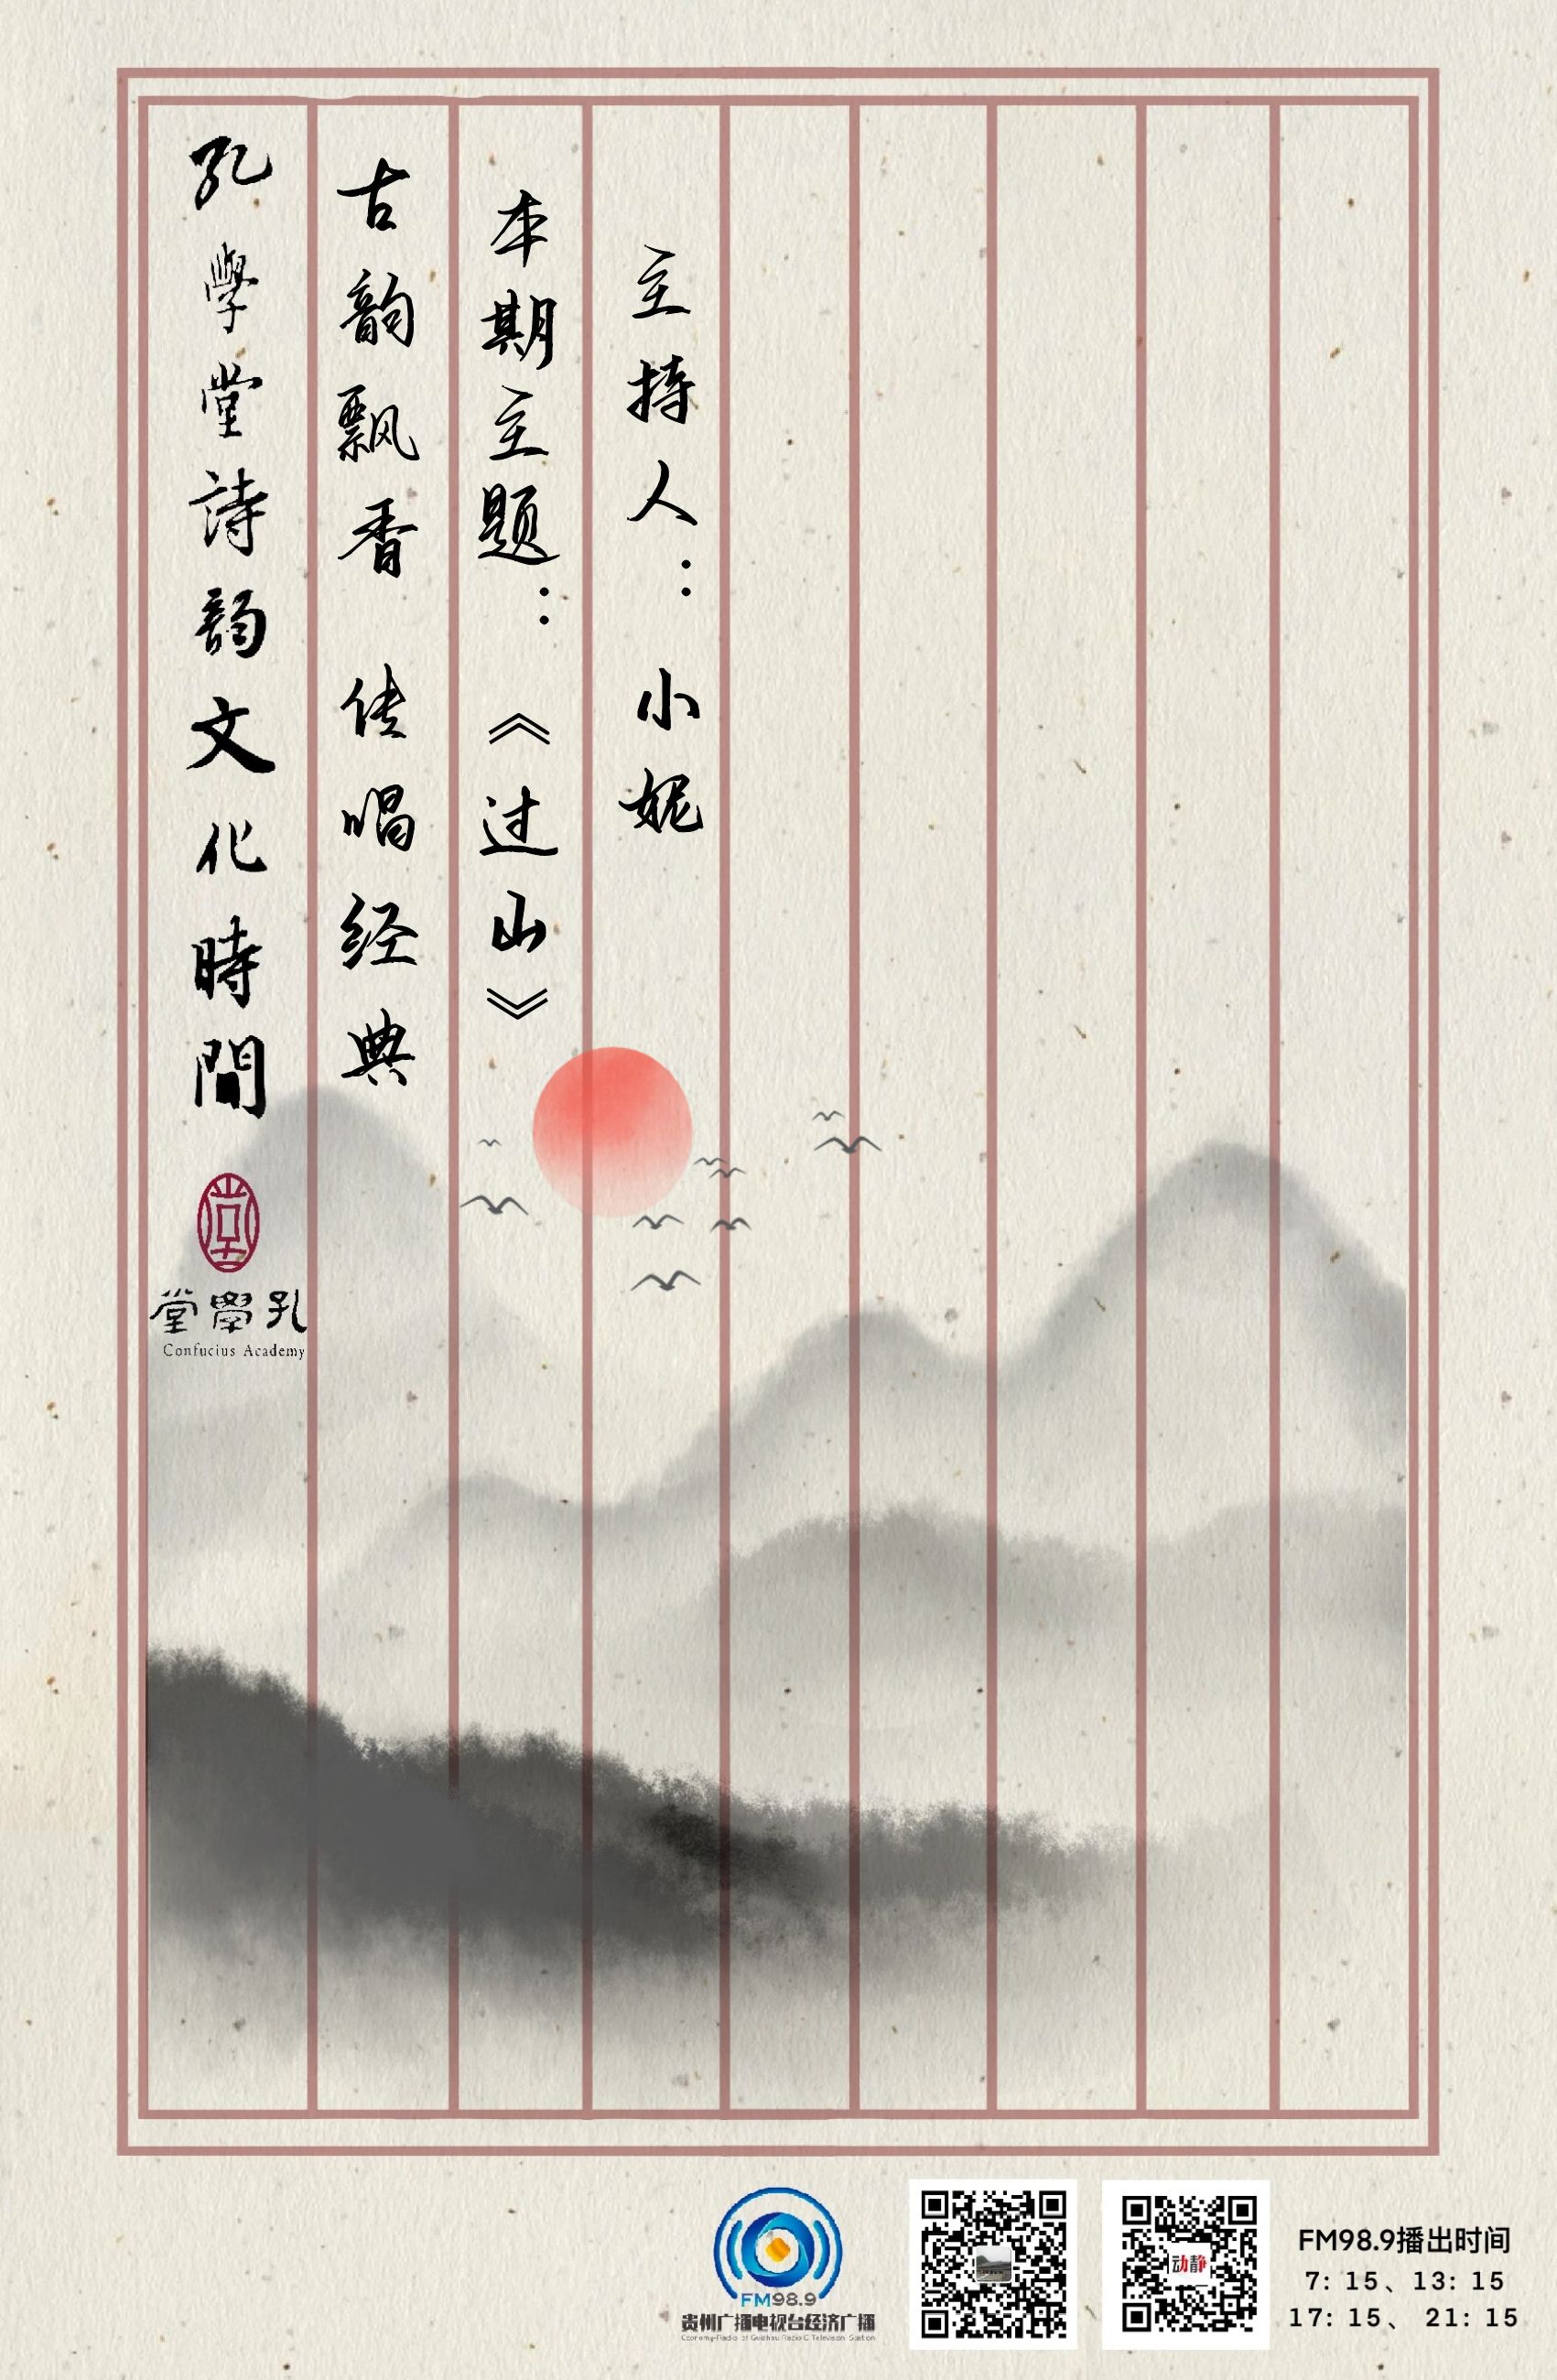 孔學堂詩韻文化時間
古韵飘香 传唱经典
本期主题：《过山》
主持人：小妮
堂學孔
Confucius Academy
FM98.9
贵州广播电视台经济广播
Economy-Radio of Guizhou Radio & Television Station
动静
FM98.9播出时间
7: 15、13: 15
17: 15、 21: 15